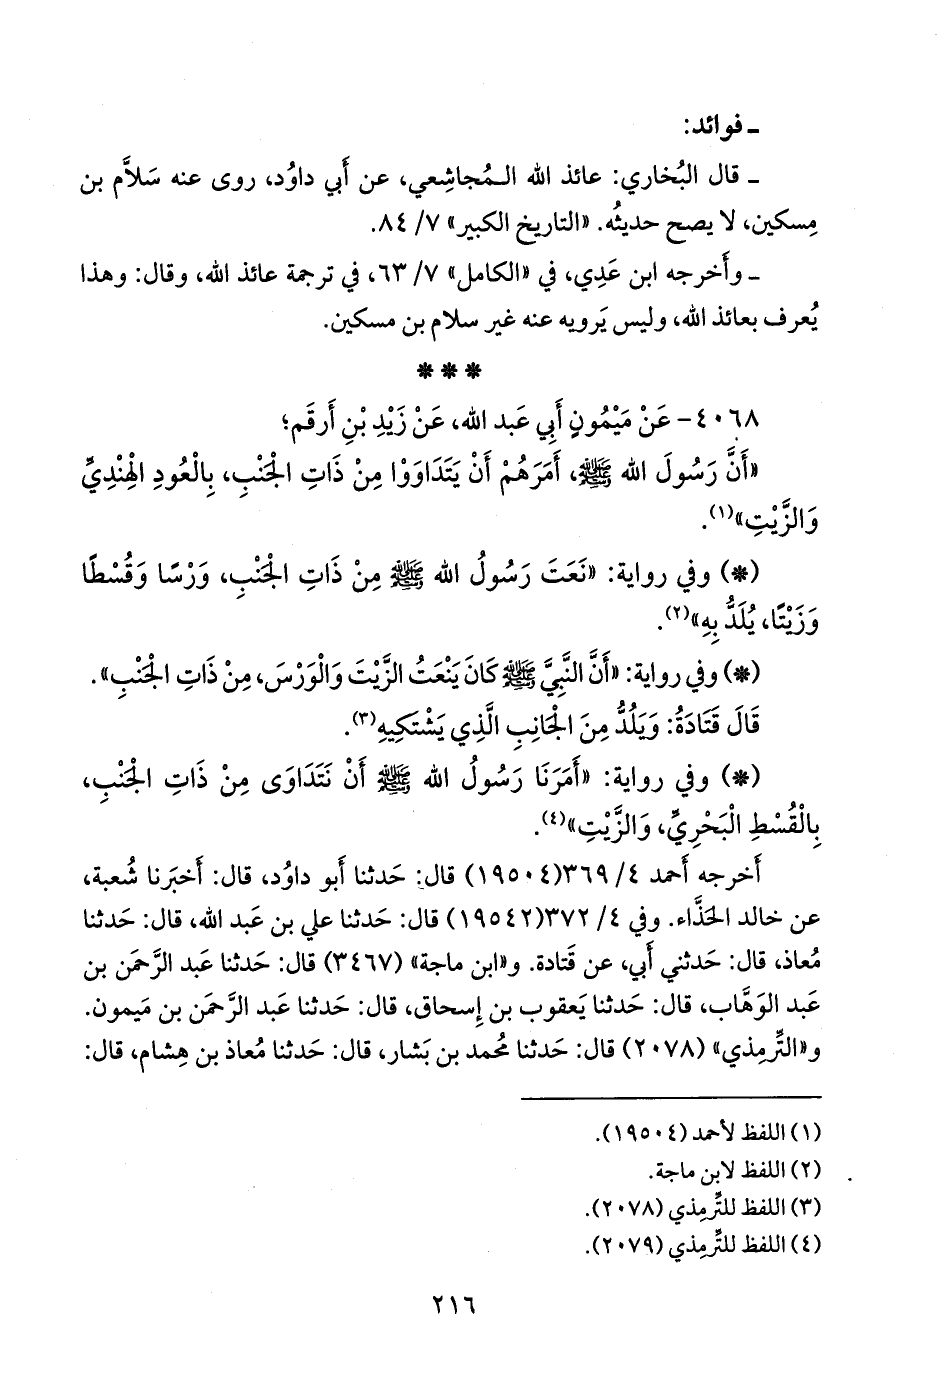 ـ فوائد:
ـ قال البُخاري: عائذ الله الـمُجاشِعي، عن أَبي داوُد، روى عنه سَلاَّم بن
مِسكين، لا يصح حديثُه. «التاريخ الكبير» ٧/ ٨٤.
ـ وأَخرجه ابن عَدِي، في «الكامل» ٧/ ٦٣، في ترجمة عائذ الله، وقال: وهذا
يُعرف بعائذ الله، وليس يَرويه عنه غير سلام بن مسكين.
* * *
٤٠٦٨- عَنْ مَيْمُونٍ أَبِي عَبد الله، عَنْ زَيْدِ بْنِ أَرقَم؛
«أَنَّ رَسُولَ الله ﷺ، أَمَرَهُمْ أَنْ يَتَدَاوَوْا مِنْ ذَاتِ الجَنْبِ، بِالْعُودِ الهِنْدِيِّ
وَالزَّيْتِ»(١).
(*) وفي رواية: «نَعَتَ رَسُولُ الله ﷺ مِنْ ذَاتِ الجَنْبِ، وَرْسًا وَقُسْطًا
وَزَيْتًا، يُلَدُّ بِهِ»(٢).
(*) وفي رواية: «أَنَّ النَّبِيَّ ﷺ كَانَ يَنْعَتُ الزَّيْتَ وَالْوَرْسَ، مِنْ ذَاتِ الجَنْبِ».
قَالَ قَتَادَةُ: وَيَلُدُّ مِنَ الجَانِبِ الَّذِي يَشْتَكِيهِ(٣).
(*) وفي رواية: «أَمَرَنَا رَسُولُ الله ﷺ أَنْ نَتَدَاوَى مِنْ ذَاتِ الجَنْبِ،
بِالْقُسْطِ الْبَحْرِيِّ، وَالزَّيْتِ»(٤).
أَخرجه أَحمد ٤/ ٣٦٩(١٩٥٠٤) قال: حَدثنا أَبو داوُد، قال: أَخبَرنا شُعبة،
عن خالد الحَذَّاء. وفي ٤/ ٣٧٢(١٩٥٤٢) قال: حَدثنا علي بن عَبد الله، قال: حَدثنا
مُعاذ، قال: حَدثني أَبي، عن قَتادة. و«ابن ماجة» (٣٤٦٧) قال: حَدثنا عَبد الرَّحمَن بن
عَبد الوَهَّاب، قال: حَدثنا يَعقوب بن إِسحاق، قال: حَدثنا عَبد الرَّحمَن بن مَيمون.
و«التِّرمِذي» (٢٠٧٨) قال: حَدثنا مُحمد بن بَشار، قال: حَدثنا مُعاذ بن هِشام، قال:
(١) اللفظ لأحمد (١٩٥٠٤).
(٢) اللفظ لابن ماجة.
(٣) اللفظ للتِّرمِذي (٢٠٧٨).
(٤) اللفظ للتِّرمِذي (٢٠٧٩).
٢١٦